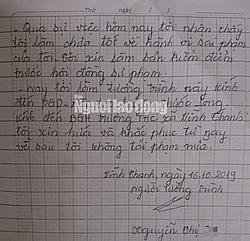 Thứ ngày
- Qua sự việc hôm nay tôi nhận thấy
tôi làm chưa tốt về hành vi sư phạm
của tôi. Tôi xin làm bản kiểm điểm
trước hội đồng sư phạm.
- Nay tôi làm tường trình này kính
đến PGD
Người lao động
kính đến BGH trường THC xã Vĩnh Thanh
tôi xin hứa và khắc phục từ nay
về sau tôi không tái phạm nữa.
Vĩnh Thanh, ngày 16.10.2019
người tường trình
Nguyễn